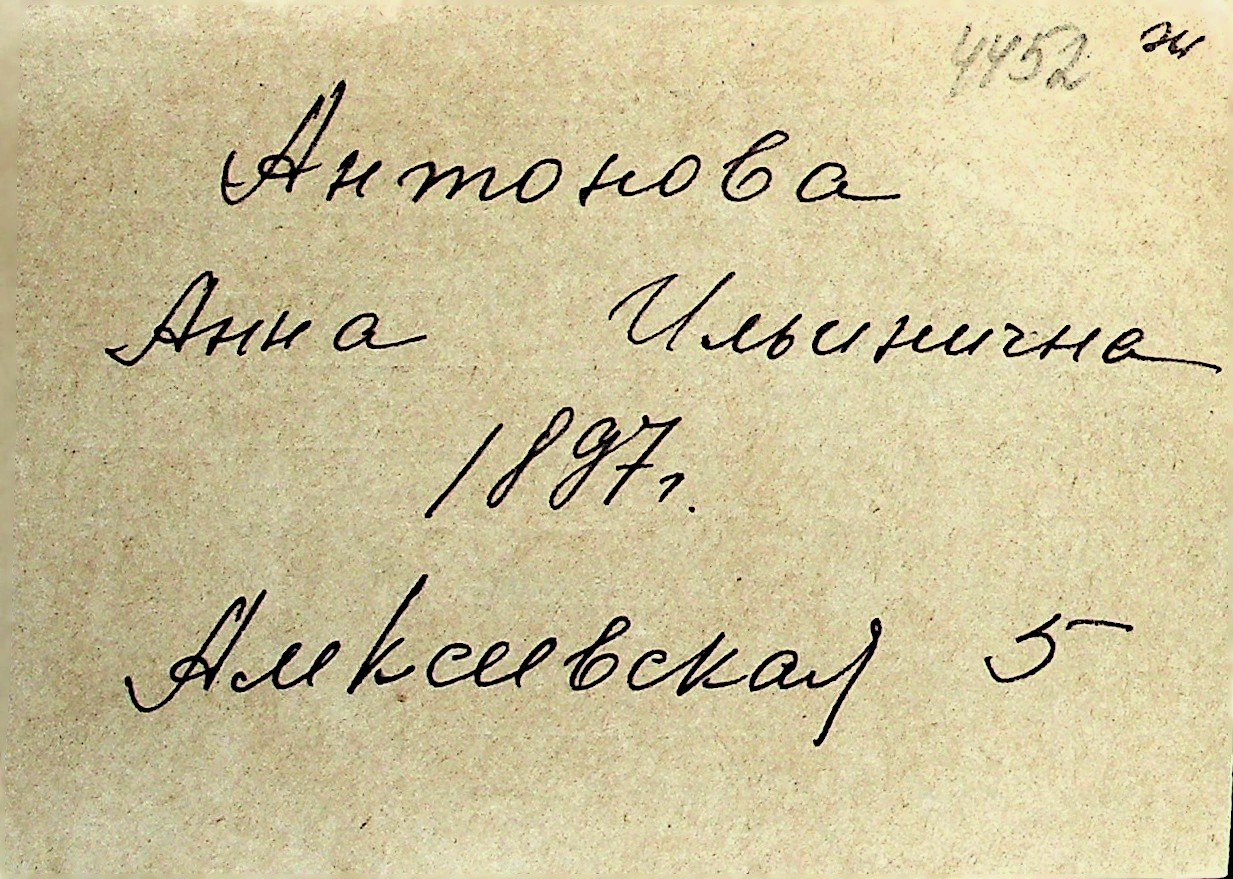 4452 ж
Антонова
Анна Ильинична
1897г.
Алексеевская 5